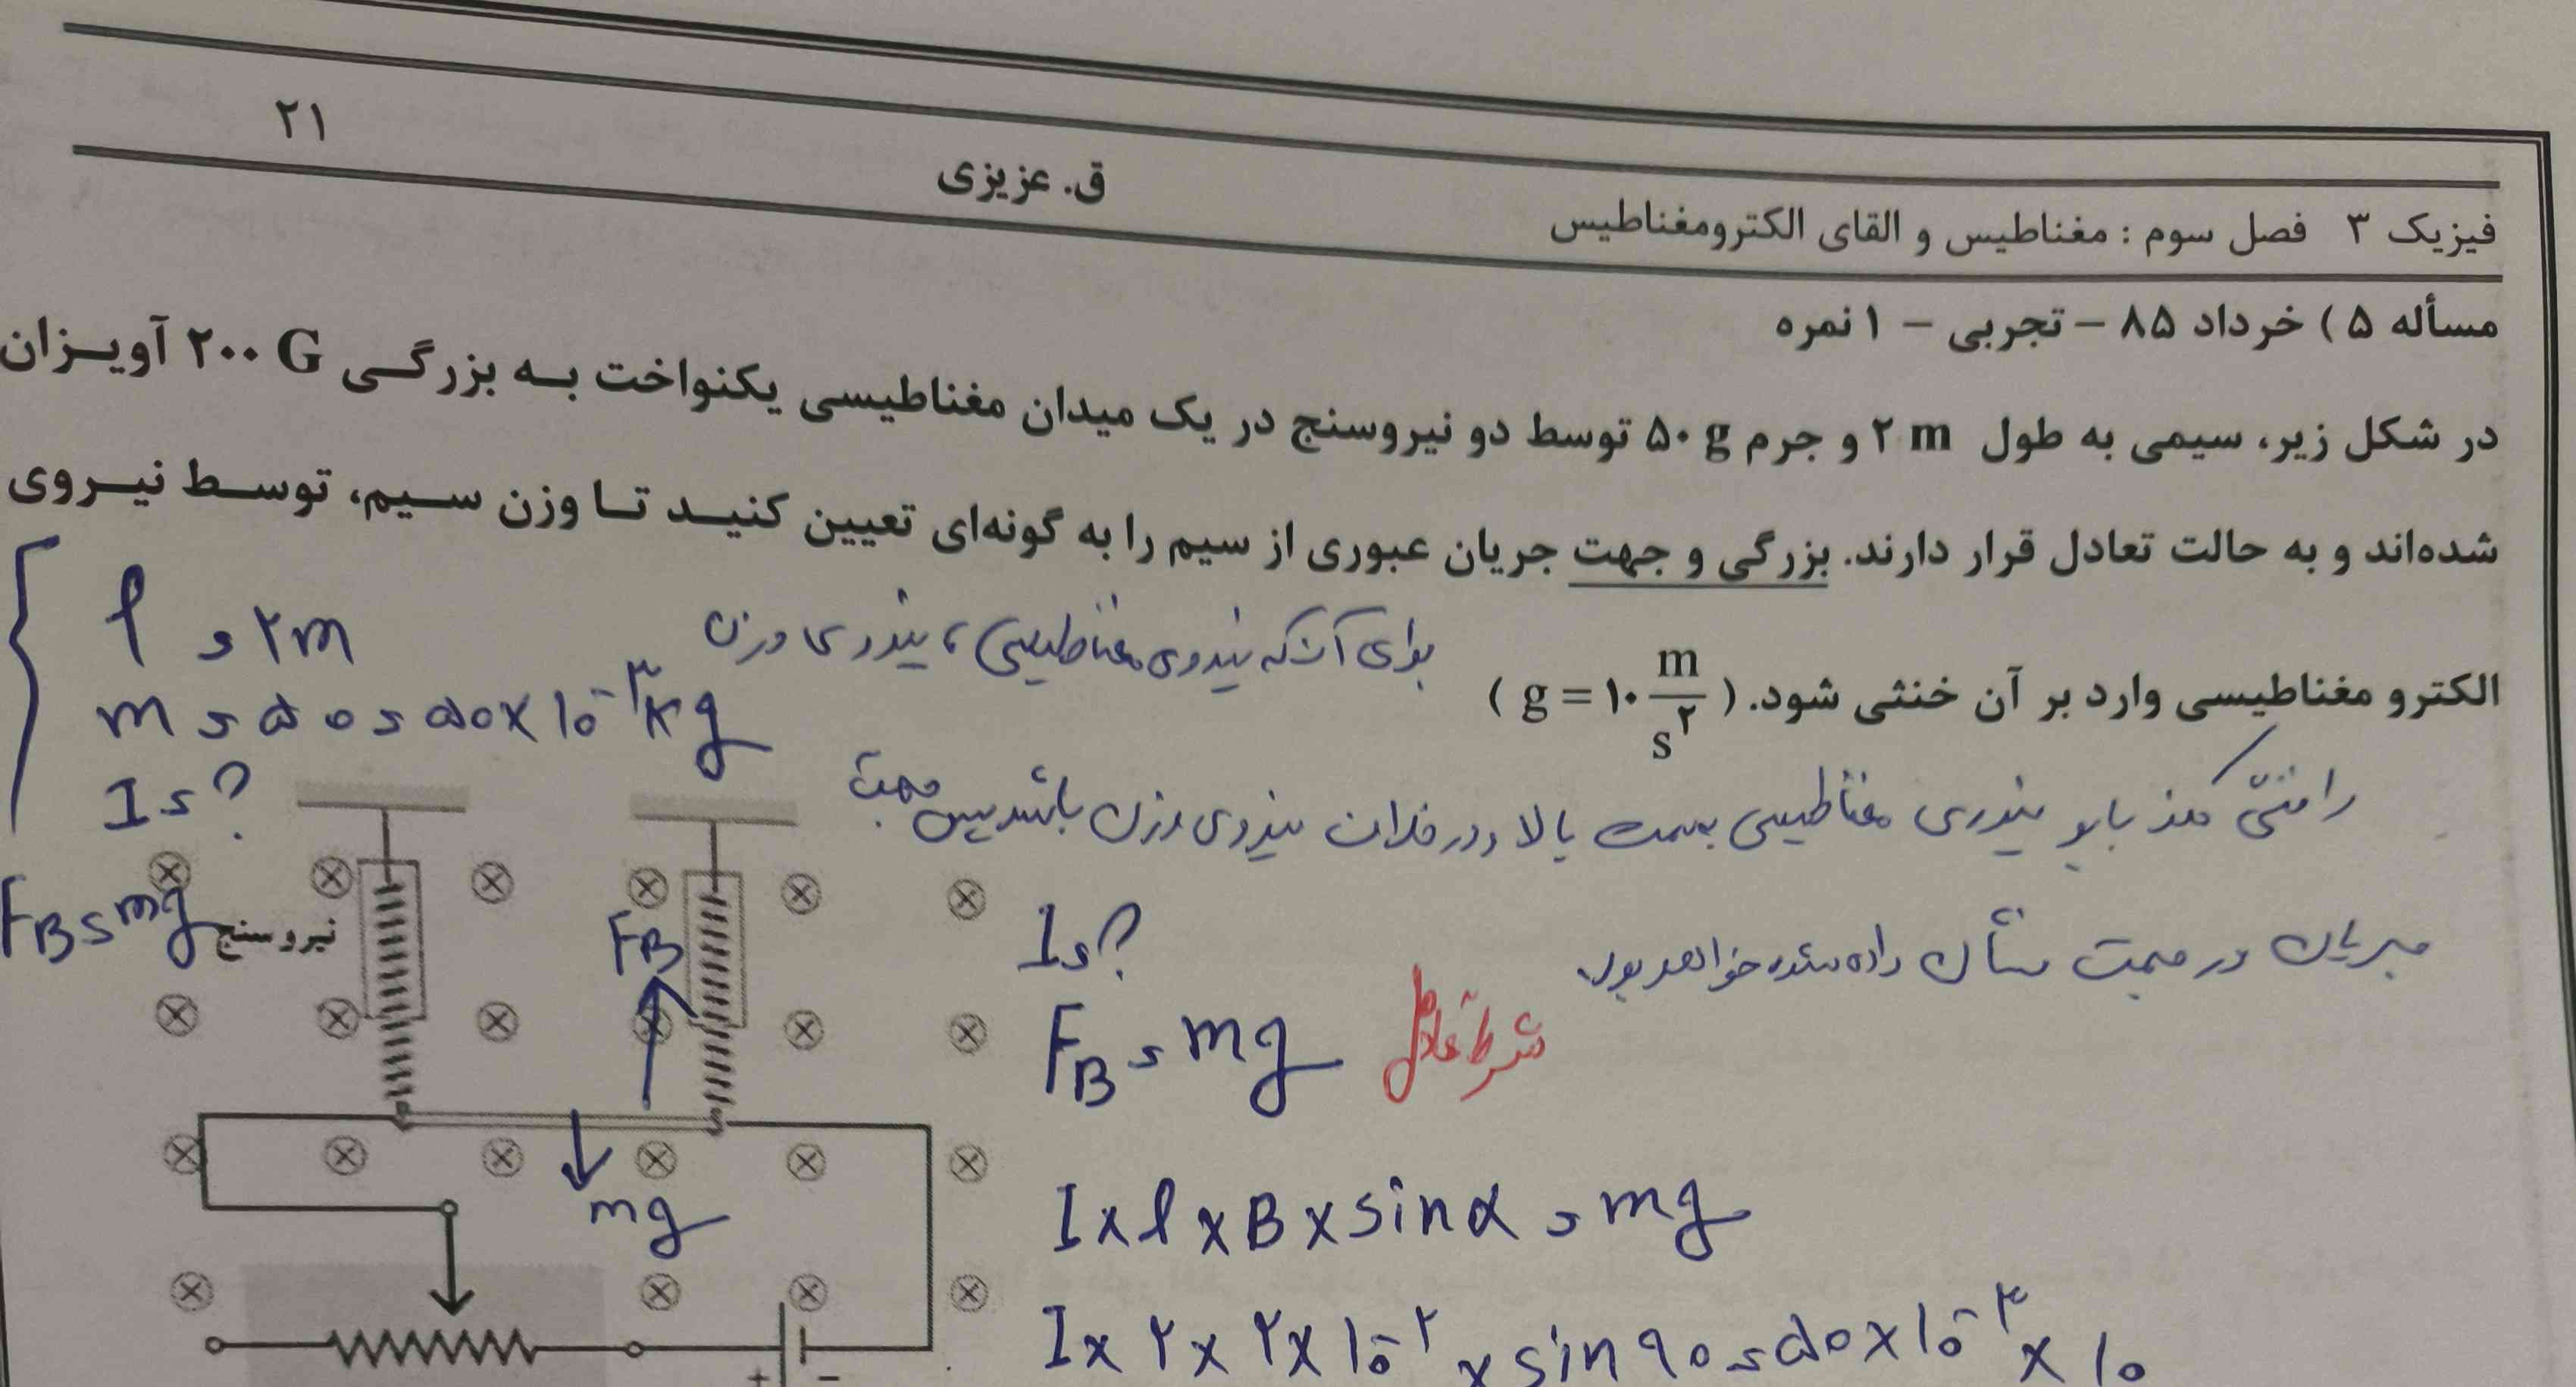 ۲۱
ق. عزیزی
فیزیک ۳ فصل سوم : مغناطیس و القای الکترومغناطیس
مسأله ۵ ) خرداد ۸۵ – تجربی – ۱ نمره
در شکل زیر، سیمی به طول ۲ m و جرم ۵۰ g توسط دو نیروسنج در یک میدان مغناطیسی یکنواخت به بزرگی ۲۰۰ G آویزان
شده‌اند و به حالت تعادل قرار دارند. بزرگی و جهت جریان عبوری از سیم را به گونه‌ای تعیین کنید تا وزن سیم، توسط نیروی
الکترو مغناطیسی وارد بر آن خنثی شود. ( g = ۱۰ m/s^۲ )
برای آنکه نیروی مغناطیسی، نیروی وزن
را خنثی کند باید نیروی مغناطیسی به سمت بالا و در خلاف نیروی وزن باشد پس جهت
جریان در جهت نشان داده شده خواهد بود.
l = ۲m
m = ۵۰ = ۵۰ × ۱۰^-۳ kg
I = ?
F_B = mg
نیروسنج
F_B
mg
+ −
I = ?
F_B = mg شرط تعادل
I × l × B × sin α = mg
I × ۲ × ۲ × ۱۰^-۲ × sin ۹۰ = ۵۰ × ۱۰^-۳ × ۱۰